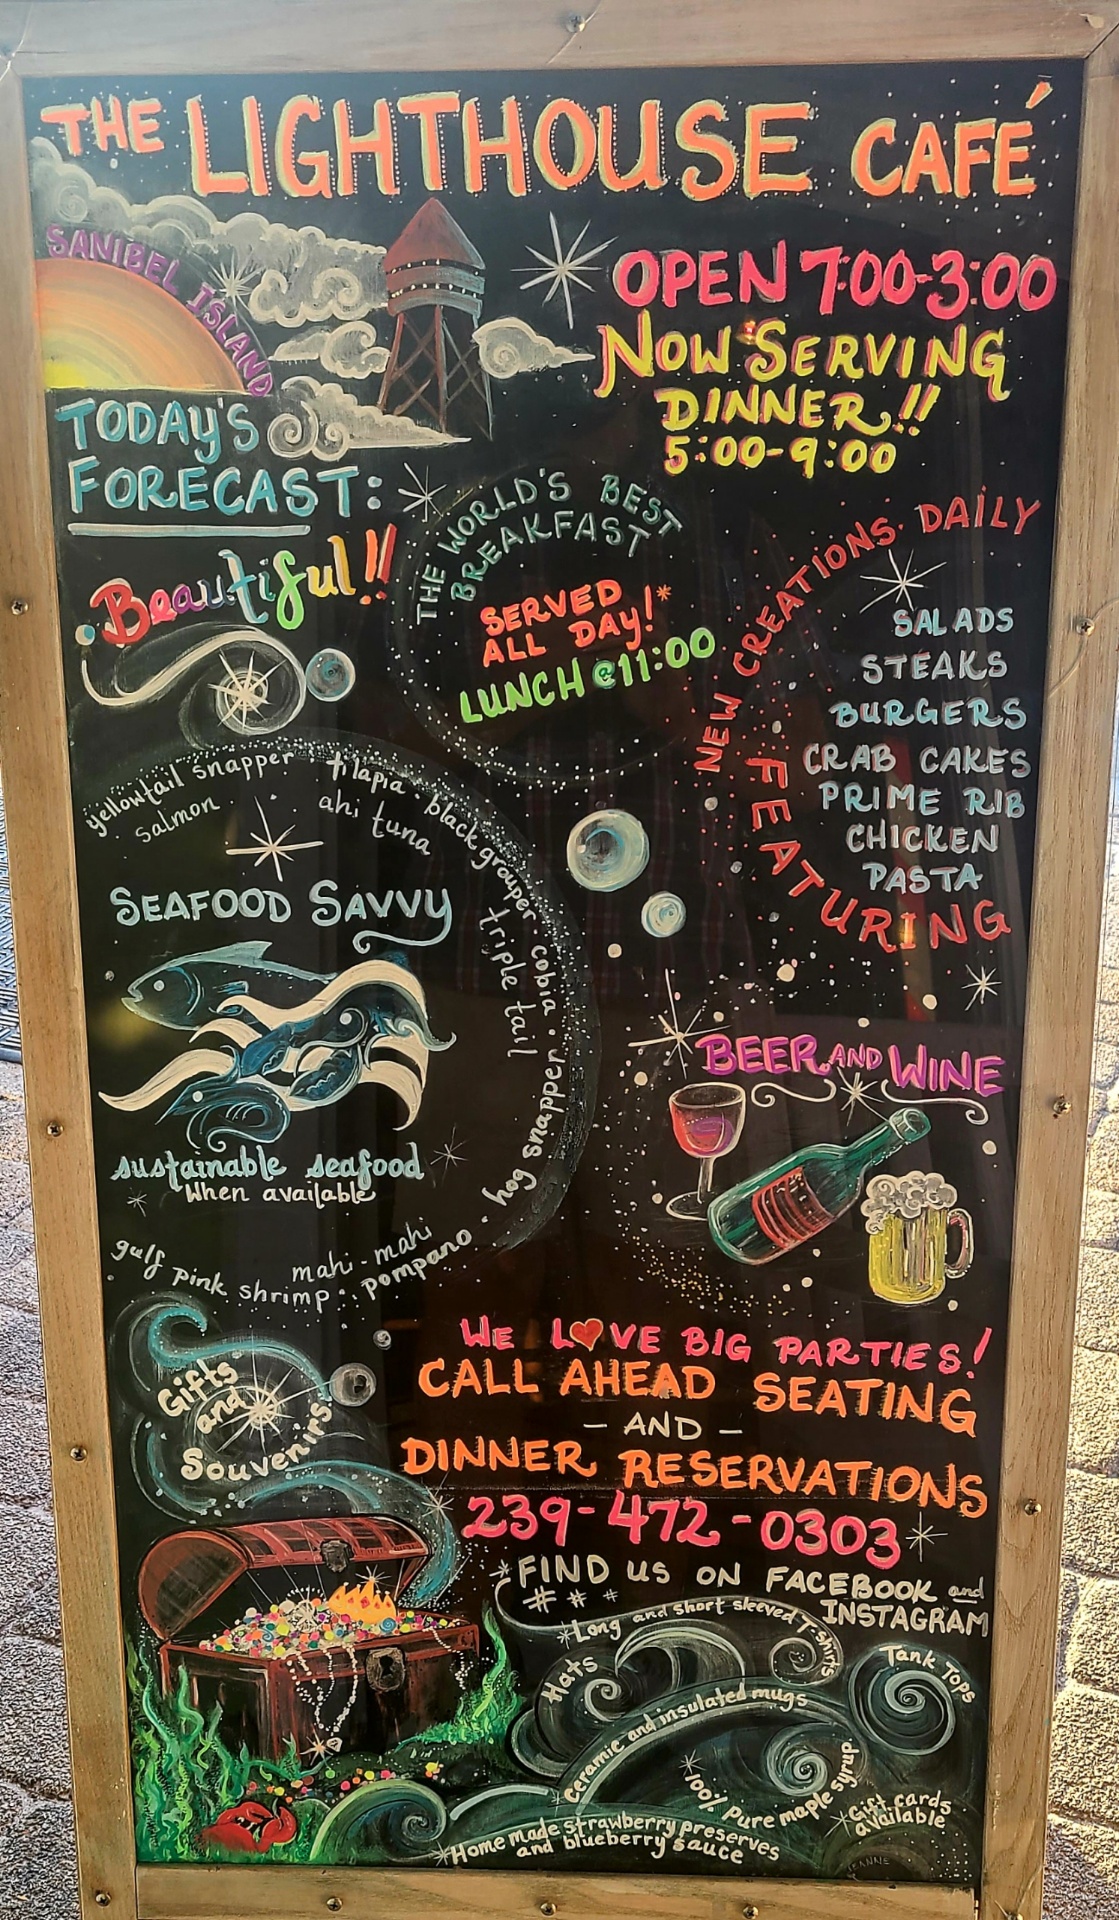 THE LIGHTHOUSE CAFÉ
SANIBEL ISLAND
OPEN 7:00-3:00
NOW SERVING
DINNER!!
5:00-9:00
TODAY'S
FORECAST:
Beautiful!!
THE WORLD'S BEST
BREAKFAST
SERVED
ALL DAY!*
LUNCH @ 11:00
NEW CREATIONS DAILY
FEATURING
SALADS
STEAKS
BURGERS
CRAB CAKES
PRIME RIB
CHICKEN
PASTA
yellowtail snapper · tilapia · black grouper · cobia · hog snapper · pompano
salmon
ahi tuna
triple tail
SEAFOOD SAVVY
sustainable seafood
When available
mahi-mahi
gulf pink shrimp
BEER AND WINE
WE LOVE BIG PARTIES!
CALL AHEAD SEATING
- AND -
DINNER RESERVATIONS
239-472-0303
*FIND US ON FACEBOOK and
INSTAGRAM
# # #
Gifts
and
Souvenirs
*Long and short sleeved T-shirts
Hats
Tank Tops
*ceramic and insulated mugs
*100% Pure maple syrup
*Gift cards
available
*Home made strawberry preserves
and blueberry sauce
JEANNE